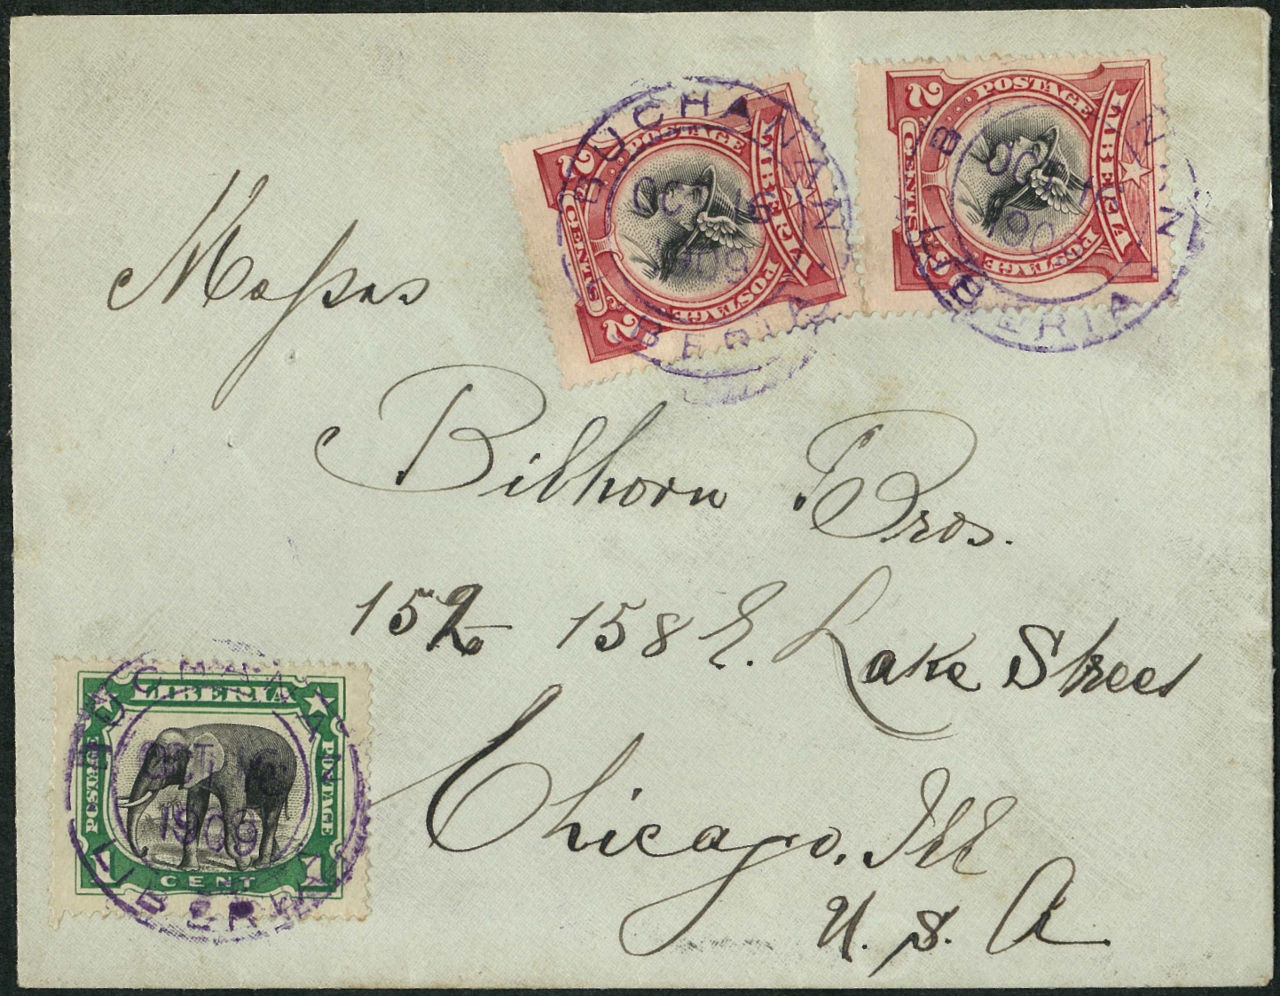 BUCHANAN
OCT 16
1909
LIBERIA
LIBERIA
POSTAGE
POSTAGE
2 CENTS 2
BUCHANAN
OCT 16
1909
LIBERIA
LIBERIA
POSTAGE
POSTAGE
2 CENTS 2
Messrs
Bilhorn Bros.
152 158 E. Lake Street
Chicago, Ill
U. S. A
BUCHANAN
OCT 16
1909
LIBERIA
LIBERIA
POSTAGE
POSTAGE
1 CENT 1